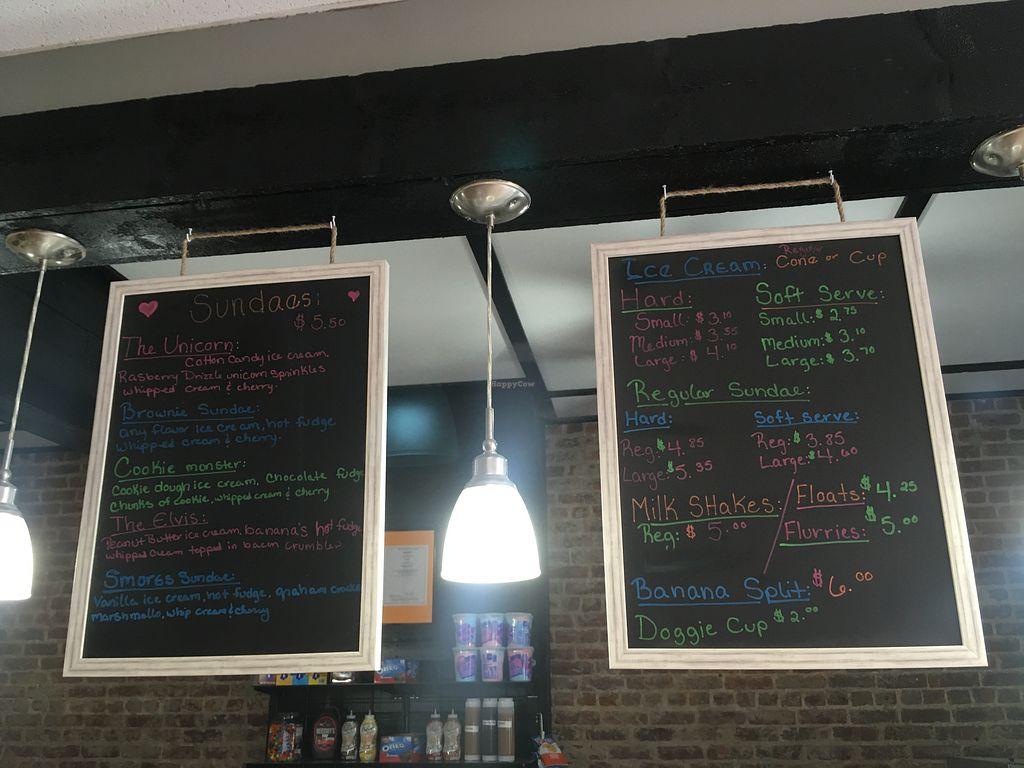 Sundaes:
$5.50
The Unicorn:
Cotton Candy ice cream,
Rasberry Drizzle unicorn sprinkles
whipped cream & cherry.
Brownie Sundae:
any flavor ice cream, hot fudge
whipped cream & cherry.
Cookie monster:
Cookie dough ice cream, chocolate fudge
chunks of cookie, whipped cream & cherry
The Elvis:
Peanut Butter ice cream, banana's hot fudge
whipped cream topped in bacon crumbles
S'mores Sundae:
Vanilla ice cream, hot fudge, graham cracker
marshmallo, whip cream & cherry
Ice Cream: Regular Cone or Cup
Hard:
Small: $3.10
Medium: $3.55
Large: $4.10
Soft Serve:
Small: $2.75
Medium: $3.10
Large: $3.70
Regular Sundae:
Hard:
Reg: $4.85
Large: $5.35
Soft serve:
Reg: $3.85
Large: $4.60
Milk Shakes:
Reg: $5.00
Floats: $4.25
Flurries: $5.00
Banana Split: $6.00
Doggie Cup $2.00
HappyCow
OREO
OREO